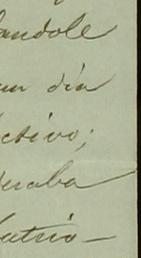 andole
un día
ctivo;
eraba
Patrio-